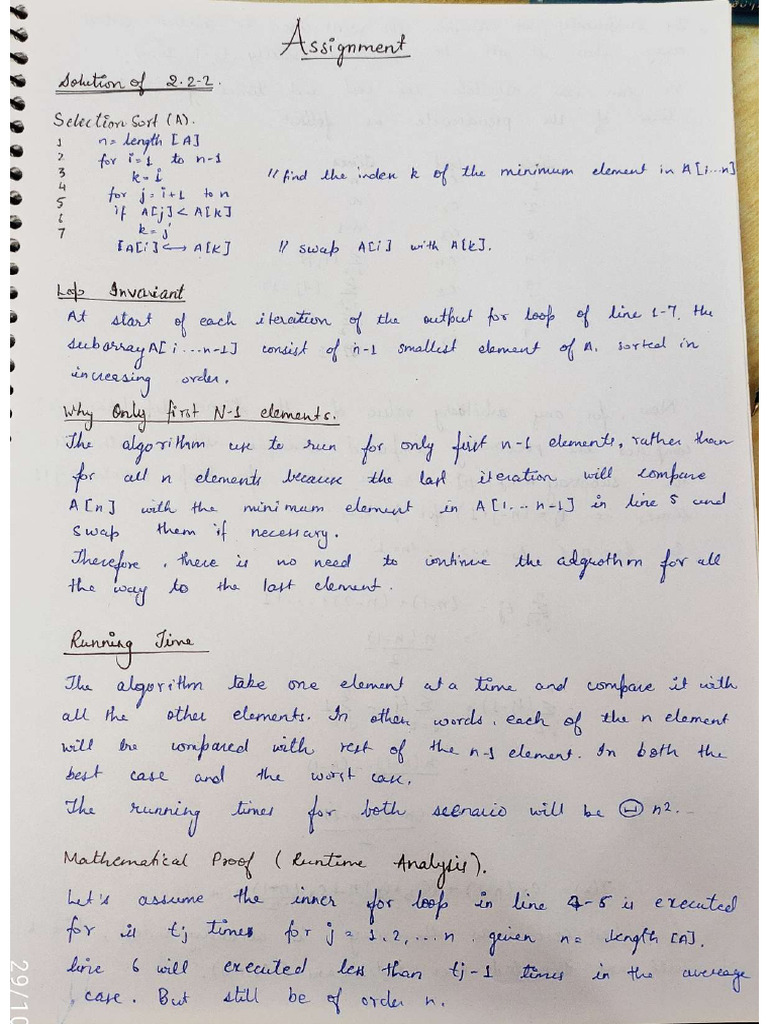 Assignment
Solution of 2.2-2.
Selection Sort (A).
1 n= length [A]
2 for i=1 to n-1
3 k= i // find the index k of the minimum element in A[i...n]
4 for j= i+1 to n
5 if A[j] < A[k]
6 k= j
7 [A[i] <-> A[k] // swap A[i] with A[k].
Loop Invariant
At start of each iteration of the output for loop of line 1-7, the
subarray A[i...n-1] consist of n-1 smallest element of A, sorted in
increasing order.
Why Only first N-1 elements.
The algorithm use to run for only first n-1 elements, rather than
for all n elements because the last iteration will compare
A[n] with the minimum element in A[1...n-1] in line 5 and
swap them if necessary.
Therefore, there is no need to continue the adguothm for all
the way to the last element.
Running Time
The algorithm take one element at a time and compare it with
all the other elements. In other words, each of the n element
will be compared with rest of the n-1 element. In both the
best case and the worst case.
The running times for both scenario will be Θ n2.
Mathematical Proof (Runtime Analysis).
Let's assume the inner for loop in line 4-5 is executed
for is tj times for j = 1,2,...n, given n= length [A].
line 6 will executed less than tj-1 times in the average
case. But still be of order n.
29/10